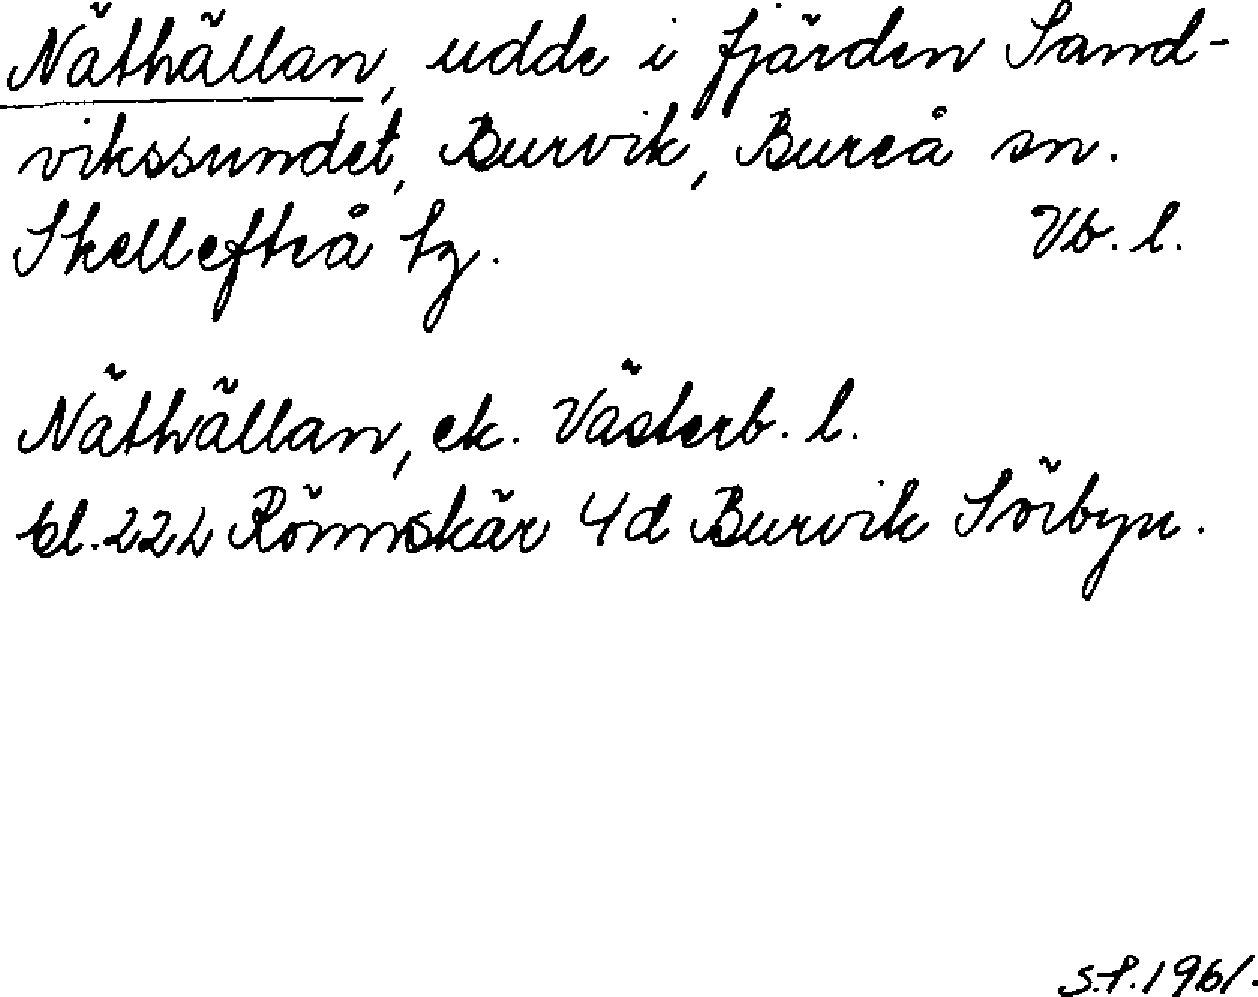 Näthällan, udde i fjärden Sand-
vikssundet, Burvik, Bureå sn.
Skellefteå tg. Vb. l.
Näthällan, ek. Västerb. l.
bl. 22L Rönnskär 4d Burvik Sörbyn.
S.P. 1961.